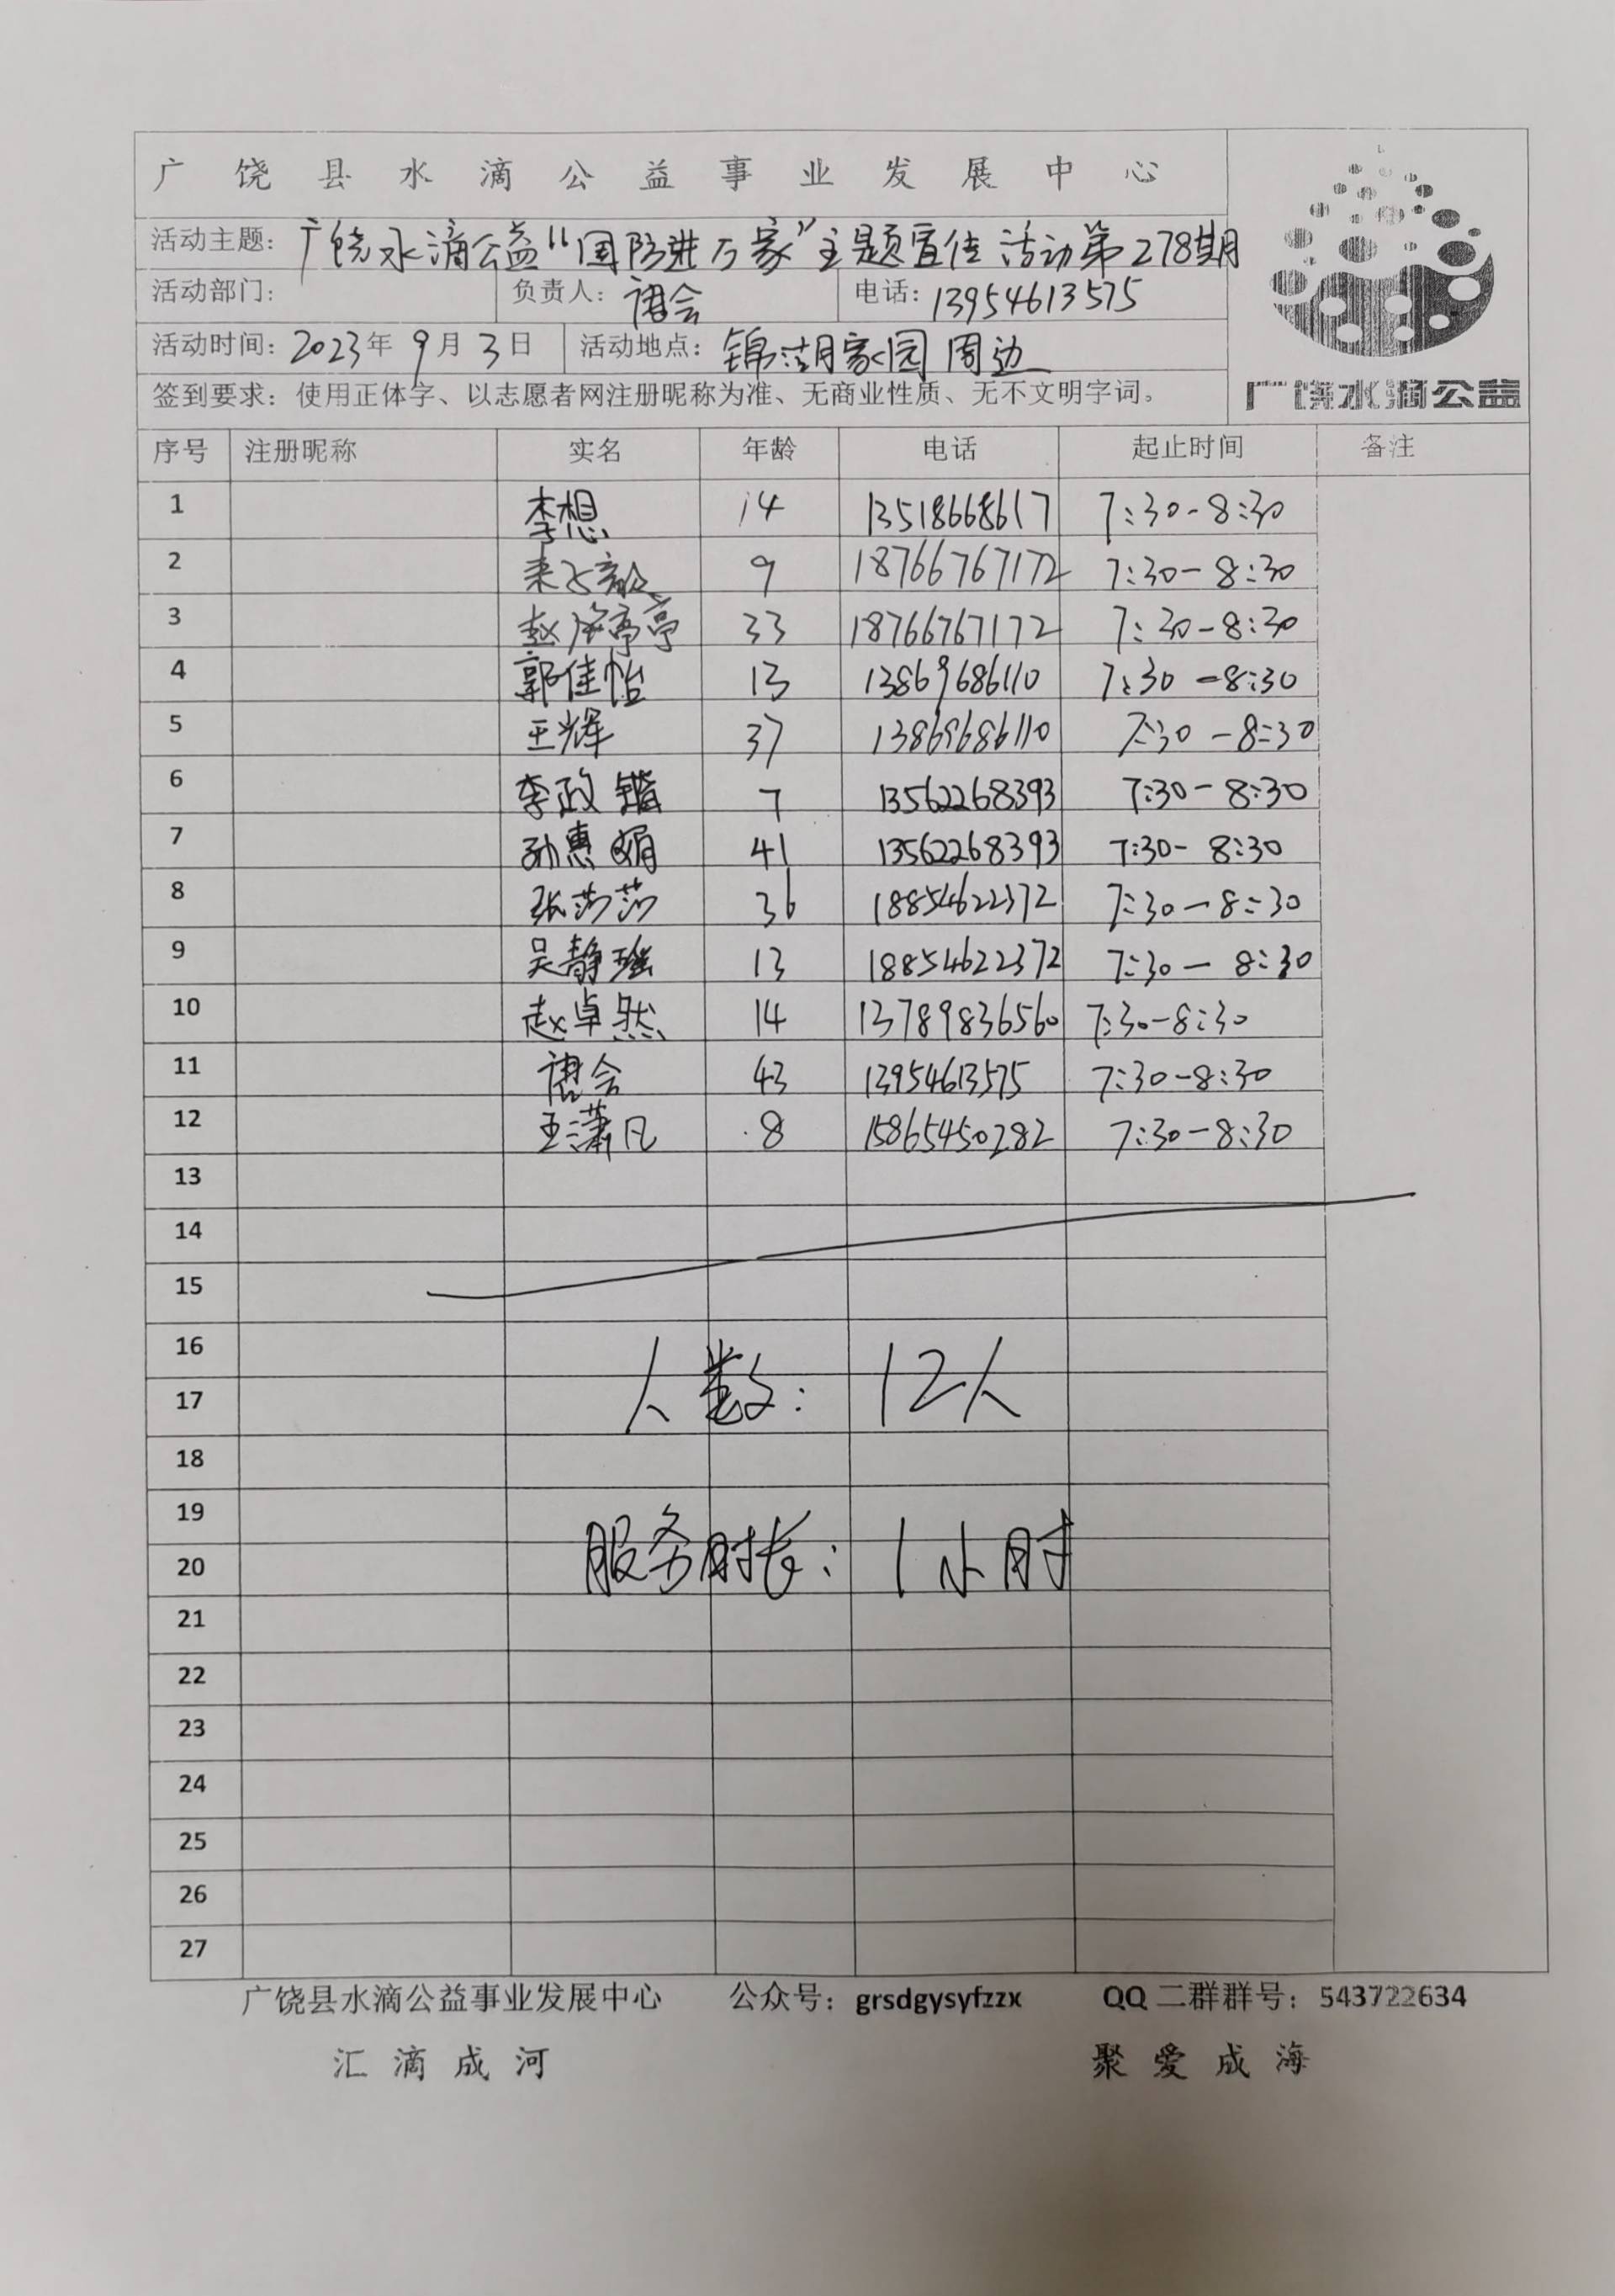 广饶县水滴公益事业发展中心
活动主题：广饶水滴公益“国防进万家”主题宣传活动第278期
活动部门： 负责人：谭会 电话：13954613575
活动时间：2023年9月3日 活动地点：锦湖家园周边
签到要求：使用正体字、以志愿者网注册昵称为准、无商业性质、无不文明字词。
广饶水滴公益
序号 注册昵称 实名 年龄 电话 起止时间 备注
1 李想 14 13518668617 7:30-8:30
2 9 18766767172 7:30-8:30
3 赵 亭亭 33 18766767172 7:30-8:30
4 郭佳怡 13 13869686110 7:30-8:30
5 王辉 37 13869686110 7:30-8:30
6 李政锴 7 13562268393 7:30-8:30
7 孙惠娟 41 13562268393 7:30-8:30
8 张莎莎 36 18854622372 7:30-8:30
9 吴静瑶 13 18854622372 7:30-8:30
10 赵卓然 14 13789836560 7:30-8:30
11 谭会 43 13954613575 7:30-8:30
12 王潇凡 8 15865450282 7:30-8:30
13
14
15
16
人数：12人
17
18
19
服务时长：1小时
20
21
22
23
24
25
26
27
广饶县水滴公益事业发展中心 公众号：grsdgysyfzzx QQ二群群号：543722634
汇滴成河 聚爱成海